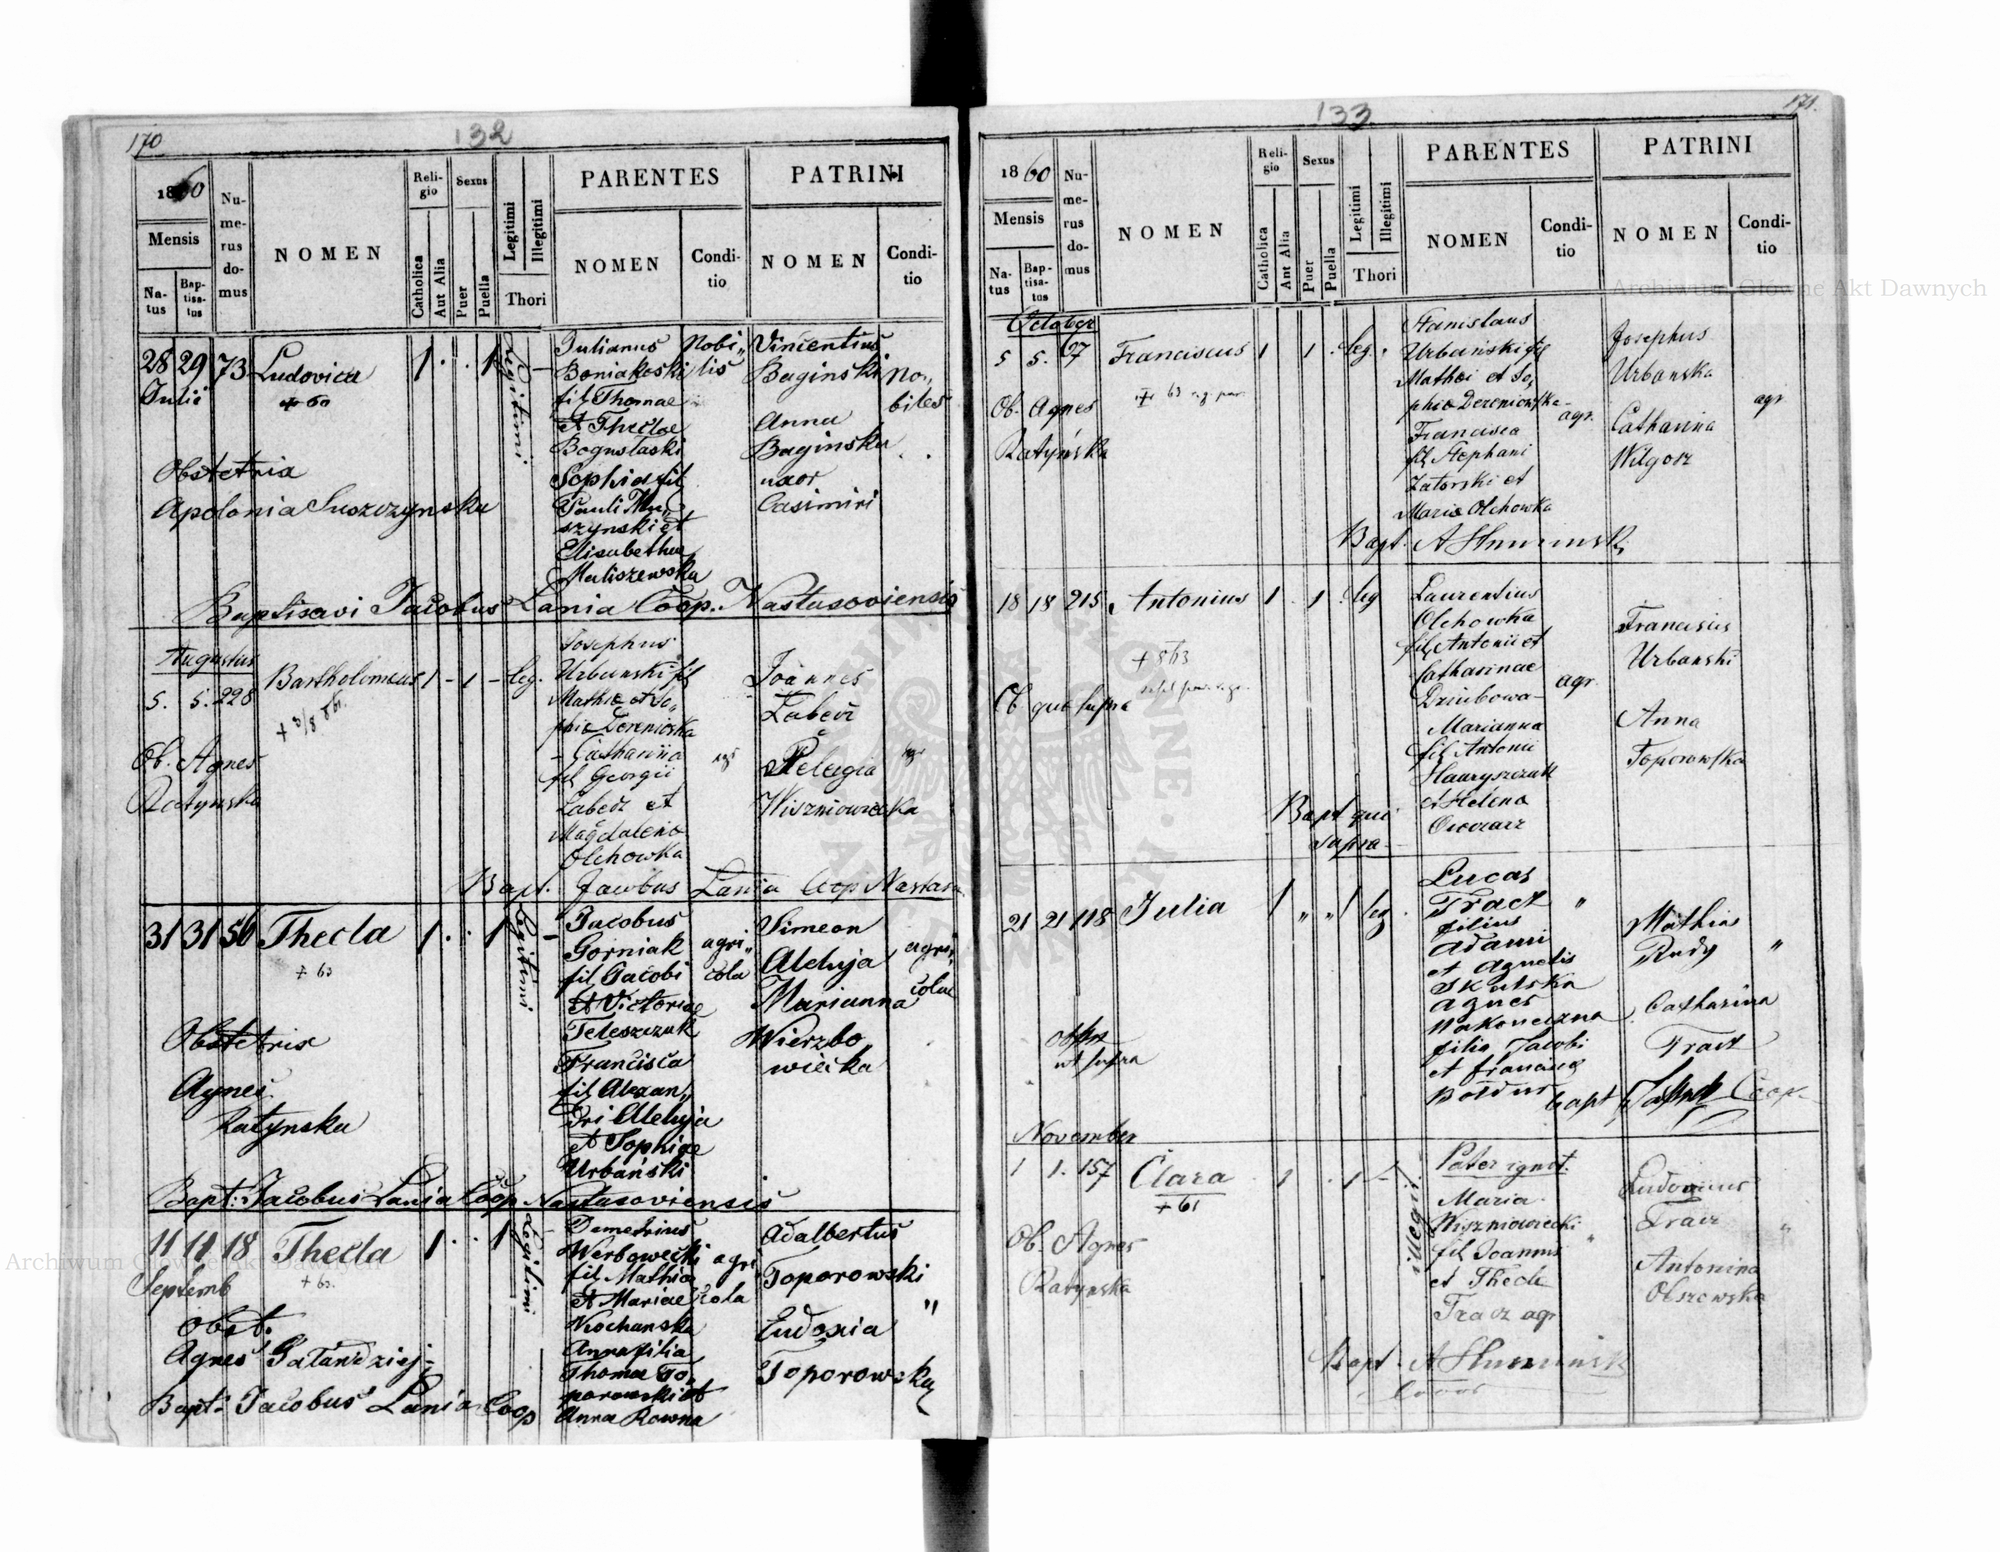 170
132
1860
Mensis
Na-
tus
Bap-
tisa-
tus
Nu-
me-
rus
do-
mus
NOMEN
Reli-
gio
Catholica
Aut Alia
Sexus
Puer
Puella
Legitimi
Illegitimi
Thori
PARENTES
NOMEN
Condi-
tio
PATRINI
NOMEN
Condi-
tio
28 29 73 Ludovica 1 . . 1 Legitimi
Julii
+ 60
Obstetrix
Apolonia Suszczynska
Julianus
Boniakoski
fil Thomae
et Theclae
Boguslaski
Sophia fil
Pauli Mu„
szynski et
Elisabetha
Maliszewska
Nobi„
lis
Vincentius
Baginski
Anna
Baginska
uxor
Casimiri
no„
biles
Baptisavi Jacobus Lania Coop. Nastasoviensis
Augustus
5. 5. 228 Bartholomeus 1 - 1 - leg.
Ob. Agnes
Ratynska
Josephus
Urbanski fil
Mathie et So„
phie Derenioska
Catharina
fil Georgii
Labedz et
Magdalena
Olchowka
agr
Joannes
Labedz
Pelagia
Wiszniowiecka
agr
Bapt. Jacobus Lania Coop Nastaso
31 31 56 Thecla 1 . . 1 Legitimi
+ 63
Obstetrix
Agnes
Ratynska
Jacobus
Gorniak
fil Jacobi
et Victoriae
Teleszczuk
Francisca
fil Alexan„
dri Aleluja
et Sophiae
Urbański
agri„
cola
Simeon
Aleluja
Marianna
Wierzbo„
wiecka
agri„
colae
Bapt: Jacobus Lania Coop Nastasoviensis
11 11 18 Thecla 1 . . 1 Legitimi
Septemb
+ 63.
Obst.
Agnes Galandziej
Demetrius
Werbowecki
fil Mathia
et Mariae
Kochanska
Anna filia
Thoma To„
porowski et
Anna Rowna
agri
cola
Adalbertus
Toporowski
Eudoxia
Toporowska
"
Bapt: Jacobus Lania Coop
171.
133
1860
Mensis
Na-
tus
Bap-
tisa-
tus
Nu-
me-
rus
do-
mus
NOMEN
Reli-
gio
Catholica
Aut Alia
Sexus
Puer
Puella
Legitimi
Illegitimi
Thori
PARENTES
NOMEN
Condi-
tio
PATRINI
NOMEN
Condi-
tio
October
5 5. 67 Franciscus 1 1 . leg.
Ob. Agnes
Ratyńska
Stanislaus
Urbański fil
Mathei et So„
phia Dereniowska
Francisca
fil Stephani
Zatorski et
Maria Olchowka
agr.
Josephus
Urbanska
Catharina
Wilgosz
agr
Bapt.
18 18 215 Antonius 1 . 1 . leg
+ 863
Ob que supra
Laurentius
Olchowka
fil Antonii et
Catharinae
Dziubowa
Marianna
fil Antonii
Hauryszczuk
et Helena
Owczarz
agr.
Franciscus
Urbanski
Anna
Toporowska
Bapt qui
supra
21 21 118 Julia 1 „ „ 1 leg.
ut supra
Lucas
Tracz
filius
Adami
et Agnetis
Skalska
Agnes
Nakoneczna
filia Jacobi
et Francisca
"
Mathias
Rudy
Catharina
Tracz
"
bapt Coop.
November
1 1. 157 Clara . 1 . 1 - illegit.
+ 61
Ob. Agnes
Ratynska
Pater ignot.
Maria
Wiszniowiecki
fil Joannis
et Thecle
Tracz agr
Ludovicus
Tracz
Antonina
Olszewska
"
Bapt.
Archiwum Główne Akt Dawnych
Archiwum Główne Akt Dawnych